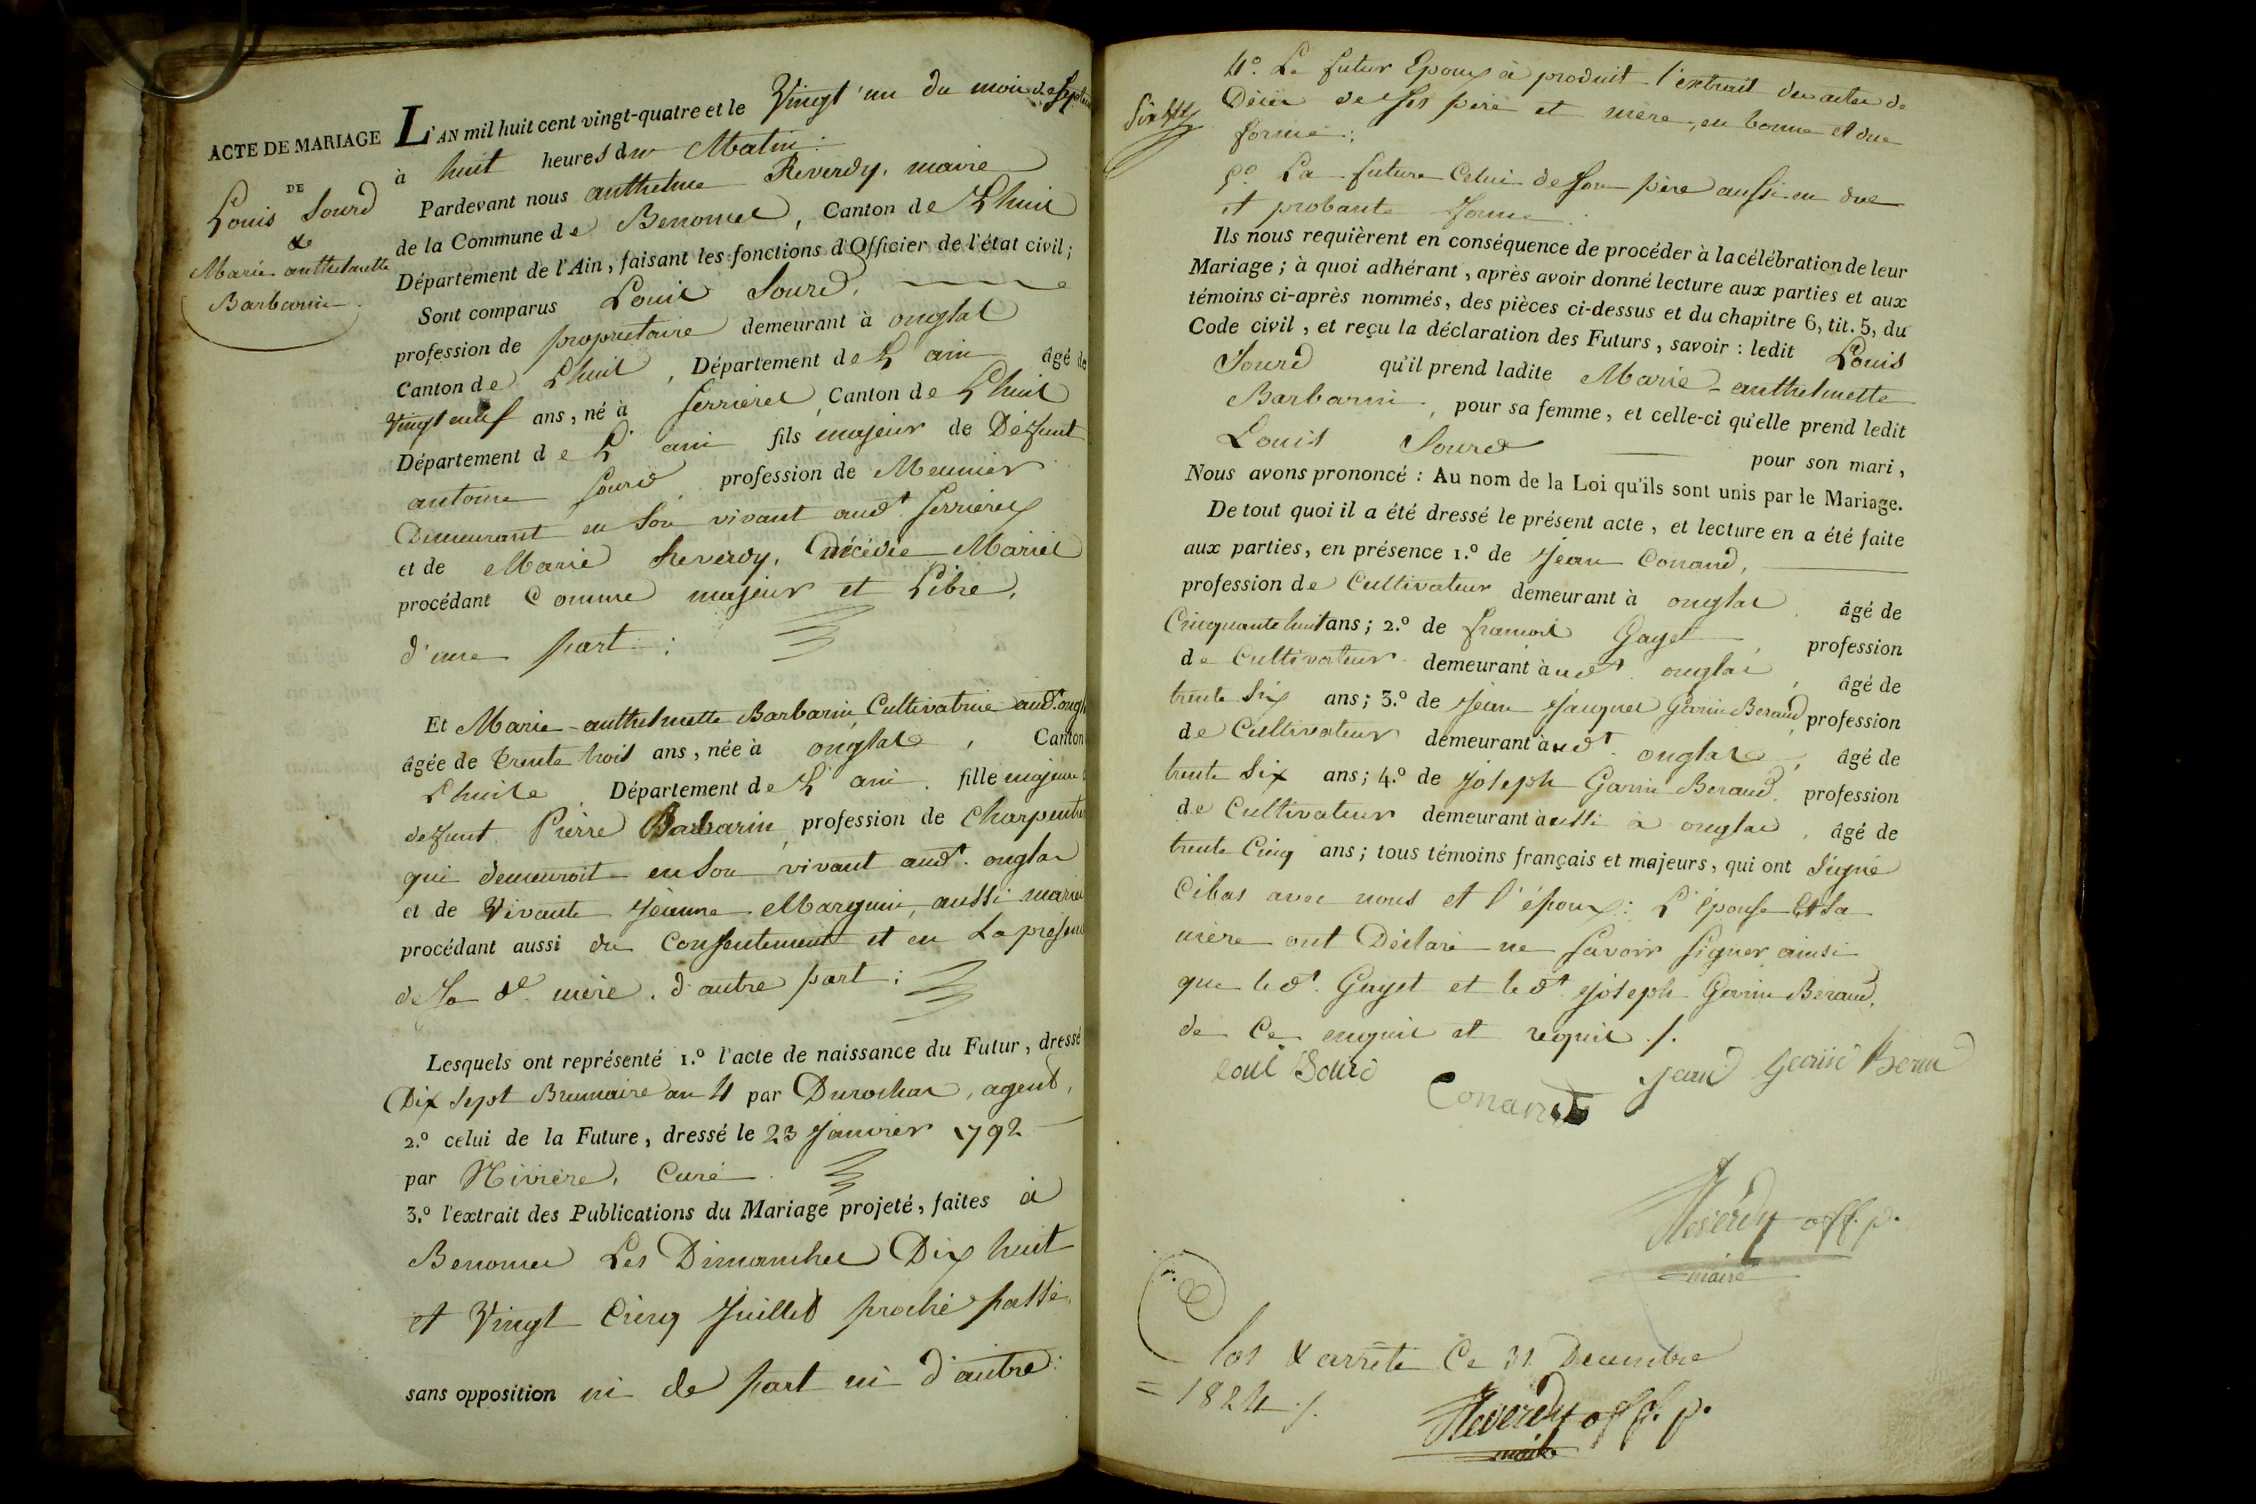 ACTE DE MARIAGE
DE
Louis Sourd
&
Marie anthelmette
Barbarin
L'AN mil huit cent vingt-quatre et le Vingt'un du mois de Septem
à huit heures du Matin.
Pardevant nous anthelme Reverdy, maire
de la Commune de Benonce, Canton de Lhuis
Département de l'Ain, faisant les fonctions d'Officier de l'état civil;
Sont comparus Louis Sourd,
profession de proprietaire demeurant à onglas
Canton de Lhuis, Département de L'ain âgé de
Vingt neuf ans, né à Serrieres, Canton de Lhuis
Département de L'ain fils majeur de Défunt
antoine Sourd, profession de Meunier
Demeurant en Son vivant aud.t Serrieres
et de Marie Reverdy, Décédée Mariés
procédant Comme majeur et Libre,
d'une part :
Et Marie-anthelmette Barbarin, Cultivatrice aud.t ongl
âgée de trente trois ans, née à onglas, Canton
Lhuis Département de L'ain. fille majeure
defunt Pierre Barbarin, profession de Charpentier
qui demeuroit en Son vivant aud.t onglas
et de Vivante Jeanne Marguin, aussi mariés
procédant aussi du Consentement et en La présen
de Sa d.e mère. d'autre part :
Lesquels ont représenté 1.º l'acte de naissance du Futur, dressé
Dix Sept Brumaire an 4 par Durochat, agent,
2.º celui de la Future, dressé le 23 Janvier 1792
par Rivière, Curé.
3.º l'extrait des Publications du Mariage projeté, faites à
Benonce Les Dimanches Dix huit
et Vingt Cinq Juillet proche passé,
sans opposition ni de part ni d'autre :
4º. Le futur Epoux à produit l'extrait des actes de
Décès de Ses père et mère, en bonne et due
forme :
5º. La future Celui de Son père aussi en due
et probante forme.
Ils nous requièrent en conséquence de procéder à la célébration de leur
Mariage; à quoi adhérant, après avoir donné lecture aux parties et aux
témoins ci-après nommés, des pièces ci-dessus et du chapitre 6, tit. 5, du
Code civil, et reçu la déclaration des Futurs, savoir : ledit Louis
Sourd qu'il prend ladite Marie-anthelmette
Barbarin, pour sa femme, et celle-ci qu'elle prend ledit
Louis Sourd pour son mari,
Nous avons prononcé : Au nom de la Loi qu'ils sont unis par le Mariage.
De tout quoi il a été dressé le présent acte, et lecture en a été faite
aux parties, en présence 1.º de Jean Conand,
profession de Cultivateur demeurant à onglas, âgé de
Cinquante huit ans; 2.º de françois Gayet, profession
de Cultivateur demeurant à ud.t onglas, âgé de
trente Six ans; 3.º de Jean Jacques Garin Beraud, profession
de Cultivateur demeurant à ud.t onglas, âgé de
trente Six ans; 4.º de Joseph Garin Beraud, profession
de Cultivateur demeurant aussi à onglas, âgé de
trente Cinq ans; tous témoins français et majeurs, qui ont Signé
Cibas avec nous et l'époux : L'épouse et Sa
mère ont Déclaré ne Savoir Signer ainsi
que le d.t Gayet et le d.t Joseph Garin Béraud,
de Ce enquis et requis ./.
Loui Sourd
Conand
Jean Garin Berau
Reverdy off. p.
maire
Clos & arrêté Ce 31 Decembre
= 1824 ./.
Reverdy off. p.
maire